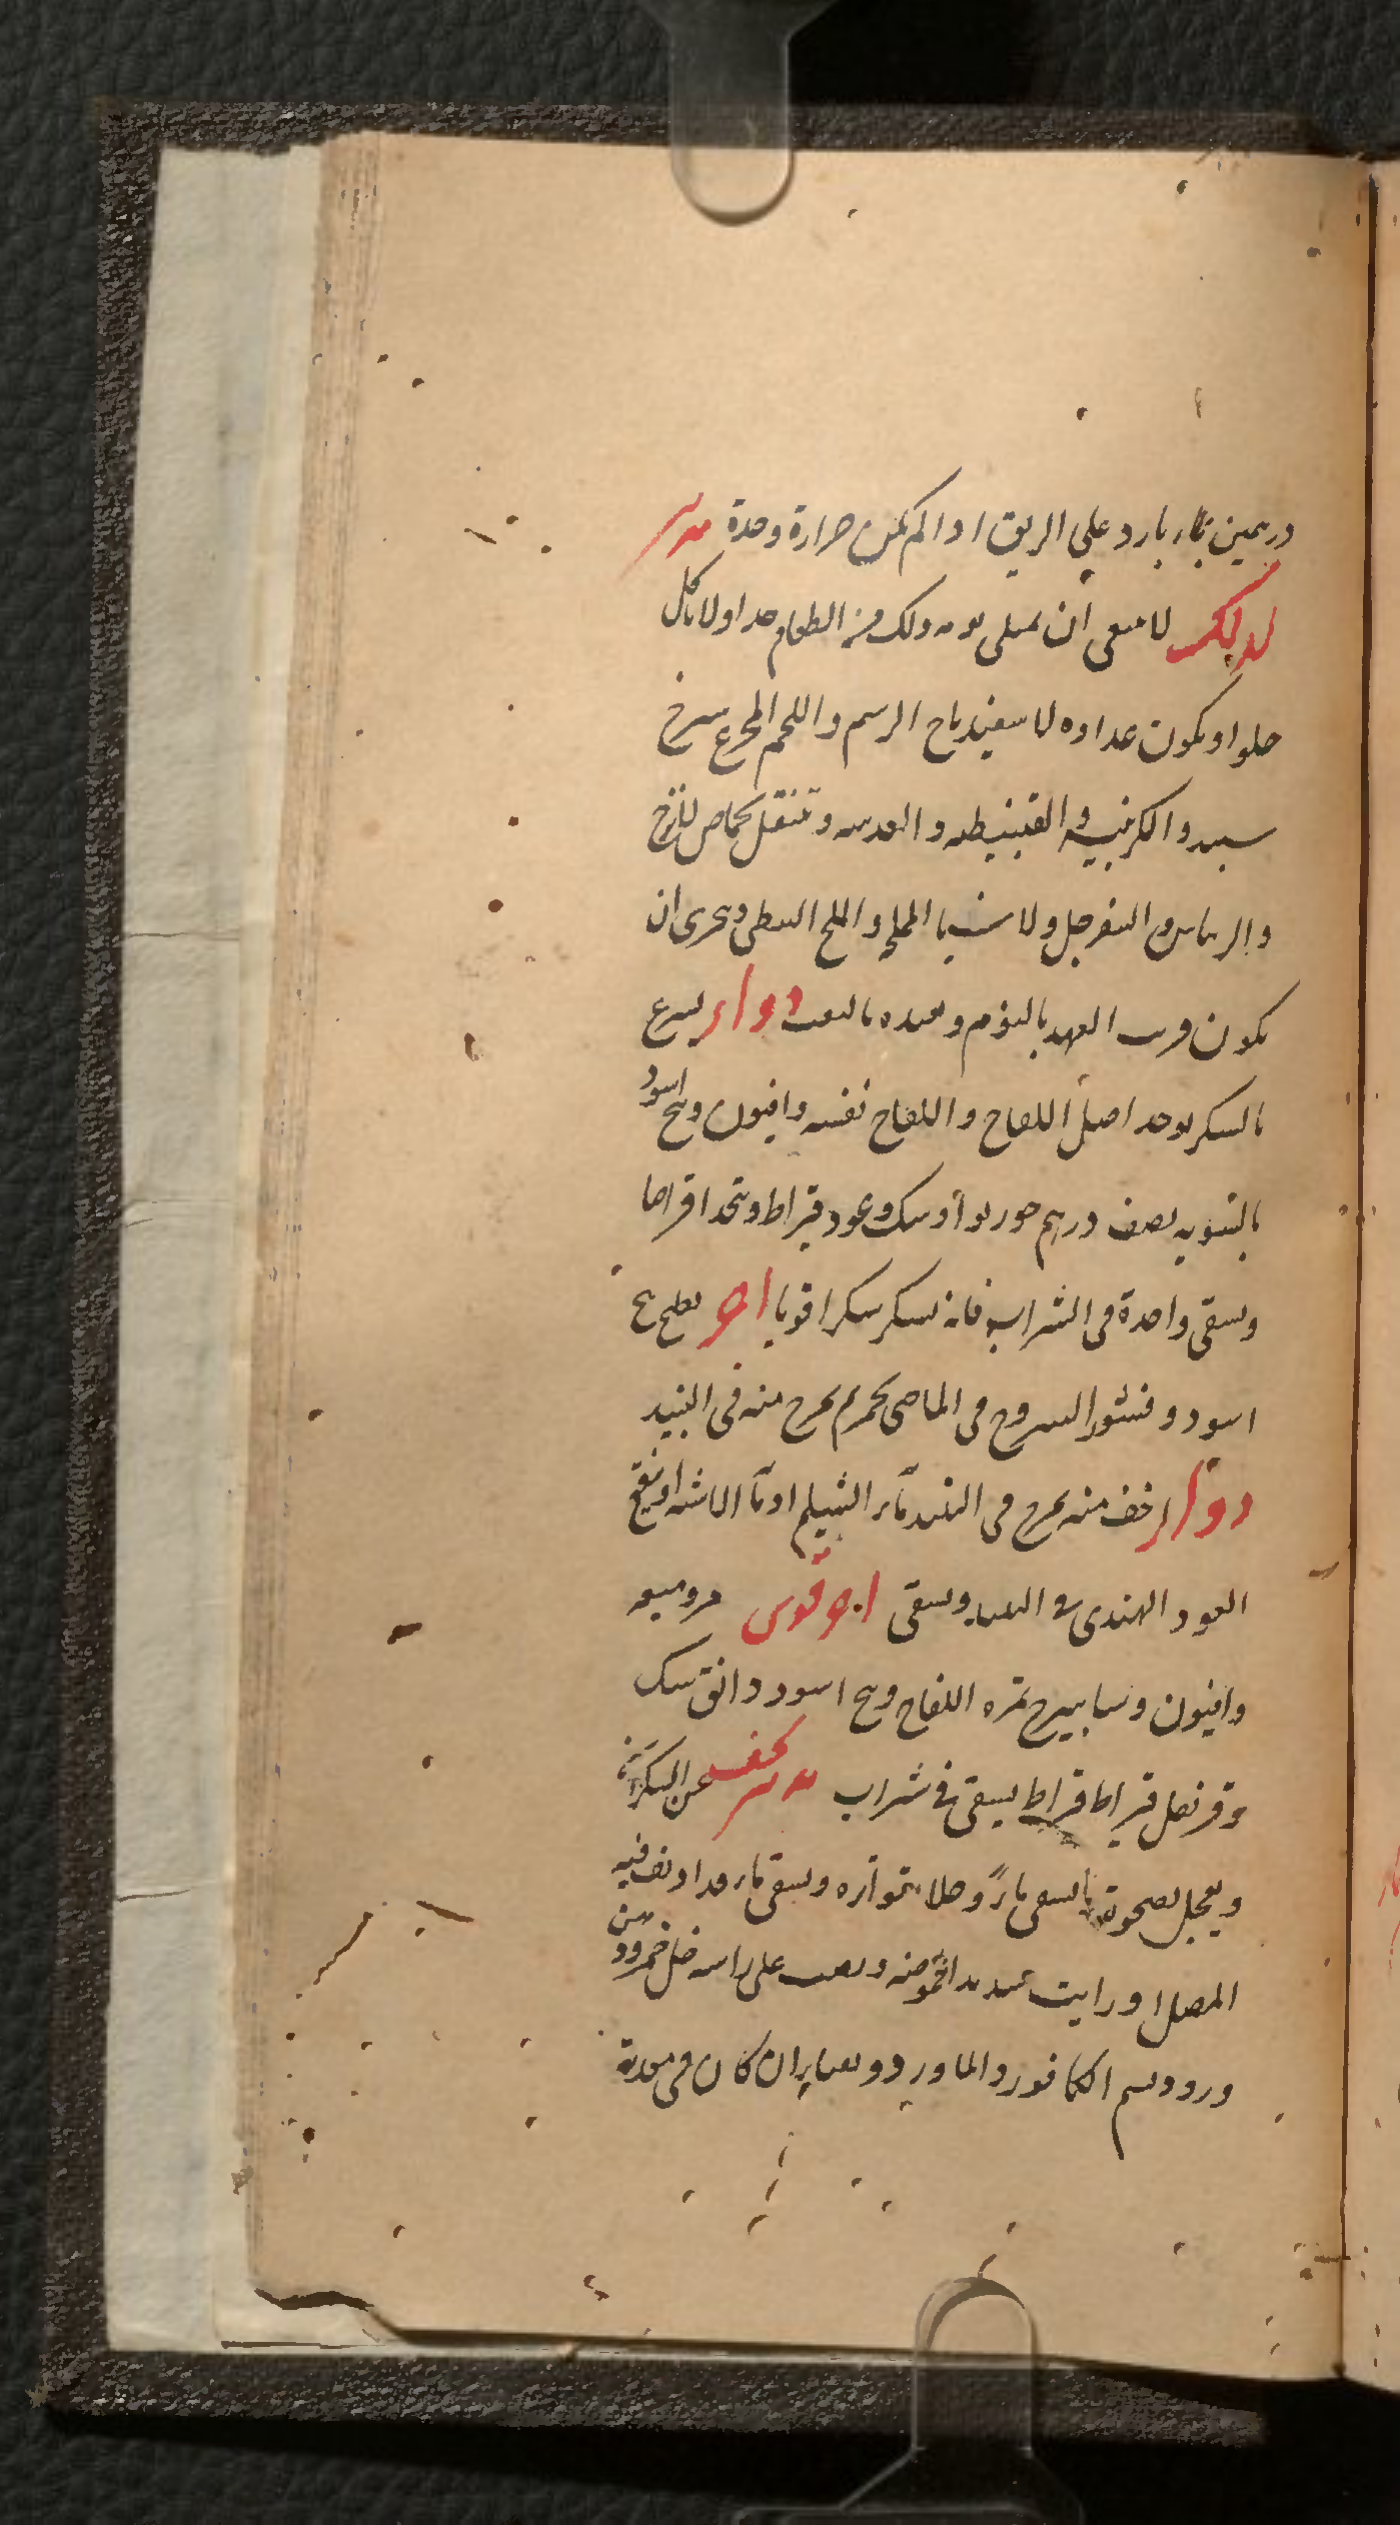 درهمين بماء بارد علي الريق اذا لم يكن حرارة وحدة تدبير
لذلك لا ينبغي ان يمتلى يومه ذلك من الطعام جدا ولا ياكل
حلوا ويكون غذاوه لاسفيدباج الرسم واللحم
والكرنبيه والقنبيطيه والعدسيه وتنقل بحماض
والريباس والسفرجل ولا الملح والملح النبطى ويحرى ان
يكون قريب العهد بالنوم وبعيده بالتعب دواء يسرع
بالسكر يوخذ اصل اللفاح واللفاح نفسه وافيون وبنج اسود
بالسويه نصف درهم جوزبوا وسك وعود قيراط ويتخذ اقراصا
ويسقى واحدة في الشراب فانه يسكر سكرا قويا اخر يطبخ بنج
اسود وقشور اليبروح في الما حتى يحمر ثم يمزج منه في النبيذ
دواء اخف منه يمزج في النبيذ ماء الشيلم او ماء الاشنه او ينقع
العود الهندى في النبيذ ويسقى اخر قوى مر وميعه
وافيون وسابيرج ثمره اللفاح وبنج اسود دانق سك
وقرنفل قيراط قيراط يسقى في شراب تدبير يخفف عن السكران
ويعجل بصحوته يسقى ماءً وخلا متواتره ويسقى ماء
المصل او رايب شديد الحموضه ويصب على راسه خل خمر ودهن
ورد ويشم الكافور والماورد ان كان في معدته